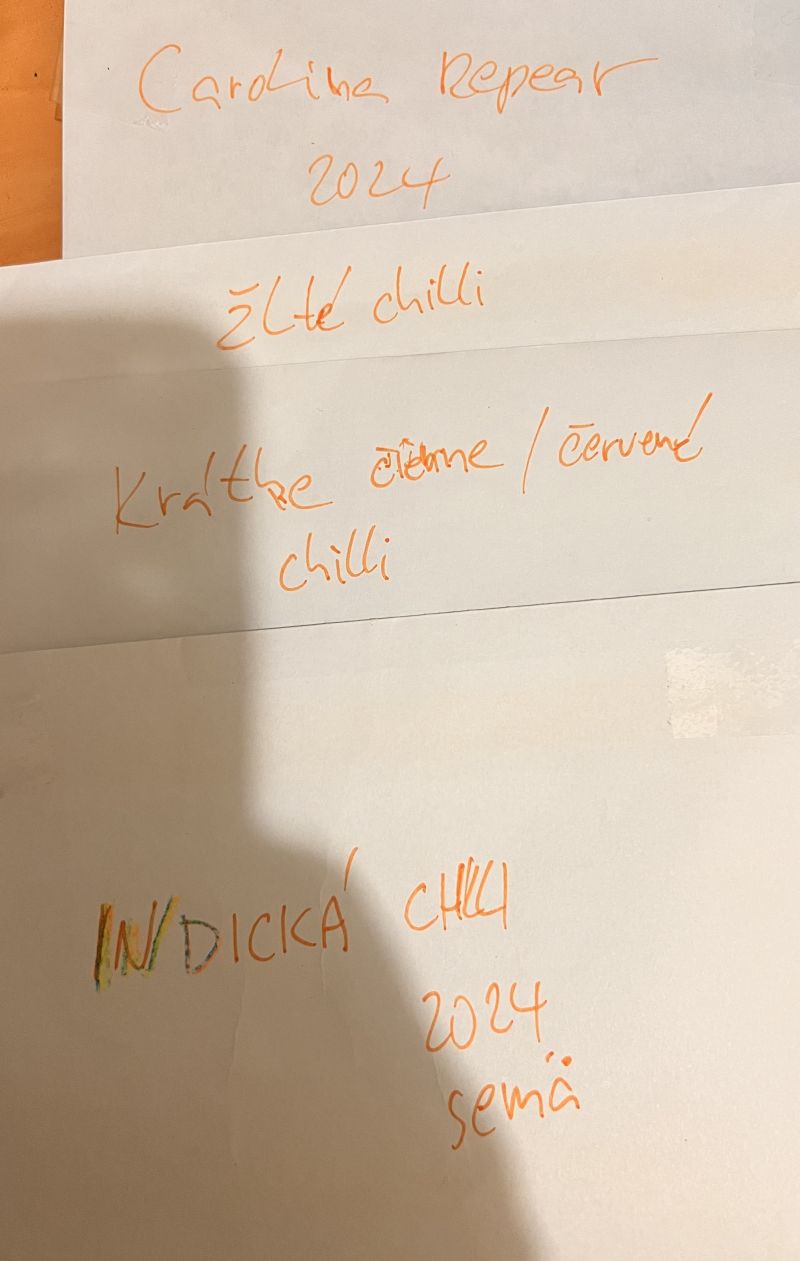 Carolina Repear
2024
žlté chilli
Krátke čierne / červené
chilli
INDICKÁ CHILLI
2024
semä